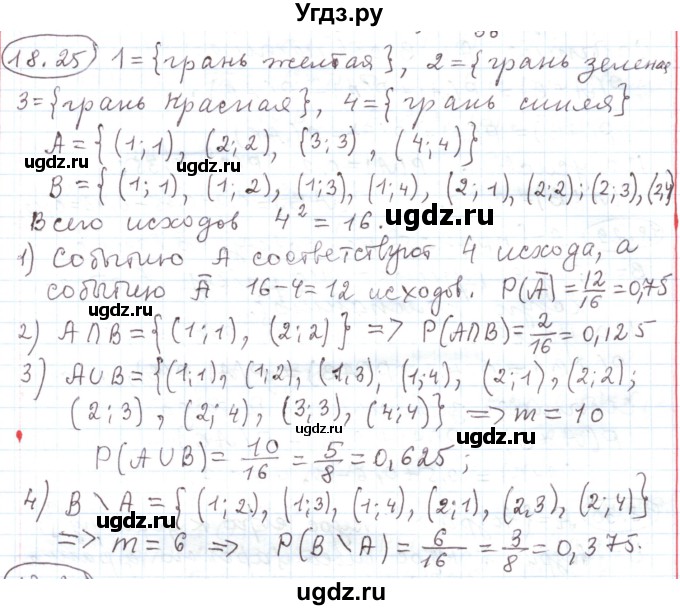 Угдз.ру
18.25 1={грань желтая}, 2={грань зеленая
3={грань красная}, 4={грань синяя}
A={(1;1), (2;2), (3;3), (4;4)}
B={(1;1), (1;2), (1;3), (1;4), (2;1), (2;2); (2;3), (2,4)
Всего исходов 4² = 16.
1) Событию A соответствуют 4 исхода, а
событию Ā 16-4=12 исходов. P(Ā)=12/16=0,75
2) A∩B={(1;1), (2;2)} => P(A∩B)=2/16=0,125
3) A∪B={(1;1), (1;2), (1,3), (1;4), (2;1), (2;2);
(2;3), (2;4), (3;3), (4;4)} => m=10
P(A∪B)=10/16=5/8=0,625;
4) B\A={(1;2), (1;3), (1;4), (2;1), (2,3), (2;4)}
=> m=6 => P(B\A)=6/16=3/8=0,375.
ugdz.ru
ugdz.ru
ugdz.ru
ugdz.ru
ugdz.ru
ugdz.ru
ugdz.ru
ugdz.ru
ugdz.ru
ugdz.ru
ugdz.ru